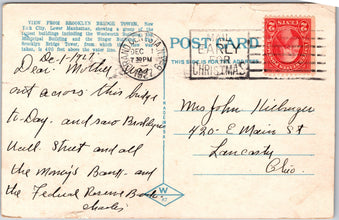 VIEW FROM BROOKLYN BRIDGE TOWER, New
York City, Lower Manhattan, showing a group of the
largest buildings including the Woolworth
Municipal Building and the Singer
Brooklyn Bridge Tower, from which this view was
taken, is 272 feet above the water
POST CARD
THIS SIDE IS FOR ADDRESS
DEC 1
7 30 PM
MAIL
EARLY
FOR
CHRISTMAS
2
Dec-1-1927
Dear Mother
Went
out across this bridge
to-Day. and saw Brooklyn
Wall Street and all
the Money's Bank- and
the Federal Reserve Bank
Charles
Mrs John
420- E Main St
Lancaster
Ohio.
W